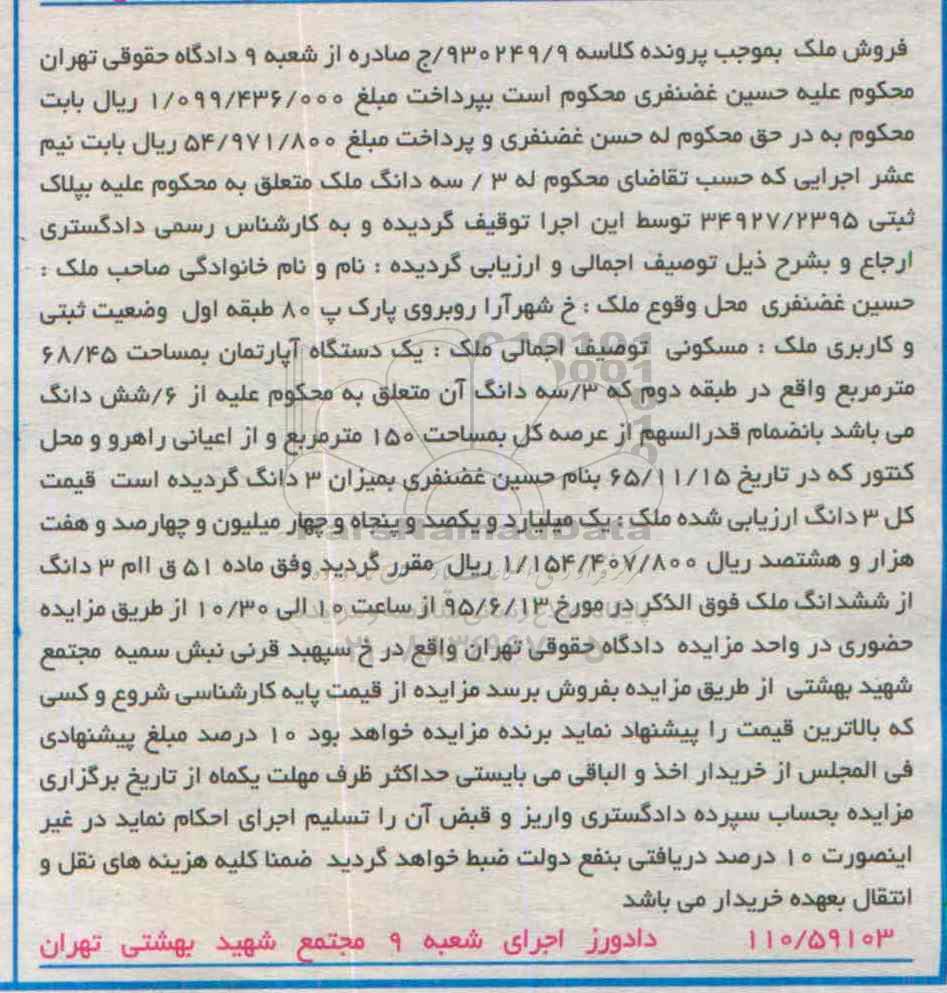 فروش ملک بموجب پرونده کلاسه ۹۳۰۲۴۹/۹/ج صادره از شعبه ۹ دادگاه حقوقی تهران
محکوم علیه حسین غضنفری محکوم است بپرداخت مبلغ ۱/۰۹۹/۴۳۶/۰۰۰ ریال بابت
محکوم به در حق محکوم له حسن غضنفری و پرداخت مبلغ ۵۴/۹۷۱/۸۰۰ ریال بابت نیم
عشر اجرایی که حسب تقاضای محکوم له ۳ / سه دانگ ملک متعلق به محکوم علیه بپلاک
ثبتی ۳۴۹۲۷/۲۳۹۵ توسط این اجرا توقیف گردیده و به کارشناس رسمی دادگستری
ارجاع و بشرح ذیل توصیف اجمالی و ارزیابی گردیده : نام و نام خانوادگی صاحب ملک :
حسین غضنفری محل وقوع ملک : خ شهرآرا روبروی پارک پ ۸۰ طبقه اول وضعیت ثبتی
و کاربری ملک : مسکونی توصیف اجمالی ملک : یک دستگاه آپارتمان بمساحت ۶۸/۴۵
مترمربع واقع در طبقه دوم که ۳/سه دانگ آن متعلق به محکوم علیه از ۶/شش دانگ
می باشد بانضمام قدرالسهم از عرصه کل بمساحت ۱۵۰ مترمربع و از اعیانی راهرو و محل
کنتور که در تاریخ ۶۵/۱۱/۱۵ بنام حسین غضنفری بمیزان ۳ دانگ گردیده است قیمت
کل ۳ دانگ ارزیابی شده ملک : یک میلیارد و یکصد و پنجاه و چهار میلیون و چهارصد و هفت
هزار و هشتصد ریال ۱/۱۵۴/۴۰۷/۸۰۰ ریال مقرر گردید وفق ماده ۵۱ ق اام ۳ دانگ
از ششدانگ ملک فوق الذکر در مورخ ۹۵/۶/۱۳ از ساعت ۱۰ الی ۱۰/۳۰ از طریق مزایده
حضوری در واحد مزایده دادگاه حقوقی تهران واقع در خ سپهبد قرنی نبش سمیه مجتمع
شهید بهشتی از طریق مزایده بفروش برسد مزایده از قیمت پایه کارشناسی شروع و کسی
که بالاترین قیمت را پیشنهاد نماید برنده مزایده خواهد بود ۱۰ درصد مبلغ پیشنهادی
فی المجلس از خریدار اخذ و الباقی می بایستی حداکثر ظرف مهلت یکماه از تاریخ برگزاری
مزایده بحساب سپرده دادگستری واریز و قبض آن را تسلیم اجرای احکام نماید در غیر
اینصورت ۱۰ درصد دریافتی بنفع دولت ضبط خواهد گردید ضمنا کلیه هزینه های نقل و
انتقال بعهده خریدار می باشد
۱۱۰/۵۹۱۰۳ دادورز اجرای شعبه ۹ مجتمع شهید بهشتی تهران
ParsNamadData